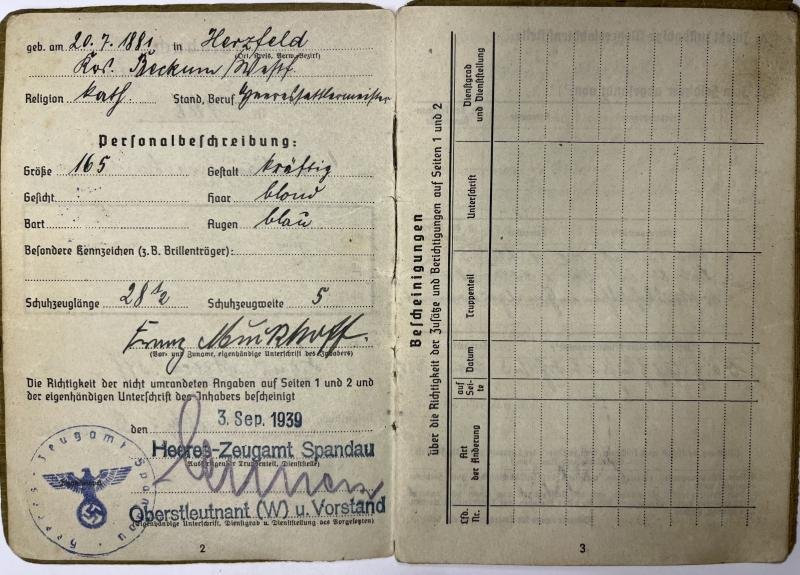 geb. am 20.7.1881 in Herzfeld
(Ort, Kreis, Verw.-Bezirk)
Krs. Beckum/Westf
Religion kath. Stand, Beruf Heeressattlermeister
Personalbeschreibung:
Größe 165 Gestalt kräftig
Gesicht Haar blond
Bart Augen blau
Besondere Kennzeichen (z.B. Brillenträger):
Schuhzeuglänge 28½ Schuhzeugweite 5
Franz
(Vor- und Zuname, eigenhändige Unterschrift des Inhabers)
Die Richtigkeit der nicht umrandeten Angaben auf Seiten 1 und 2 und
der eigenhändigen Unterschrift des Inhabers bescheinigt
den 3. Sep. 1939
Heeres-Zeugamt Spandau
(Ausfertigender Truppenteil, Dienststelle)
Oberstleutnant (W) u. Vorstand
(Eigenhändige Unterschrift, Dienstgrad u. Dienststellung des Vorgesetzten)
Heeres-Zeugamt Spandau
2
Bescheinigungen
über die Richtigkeit der Zusätze und Berichtigungen auf Seiten 1 und 2
Lfd. Nr.
Art der Änderung
auf Seite
Datum
Truppenteil
Unterschrift
Dienstgrad und Dienststellung
3